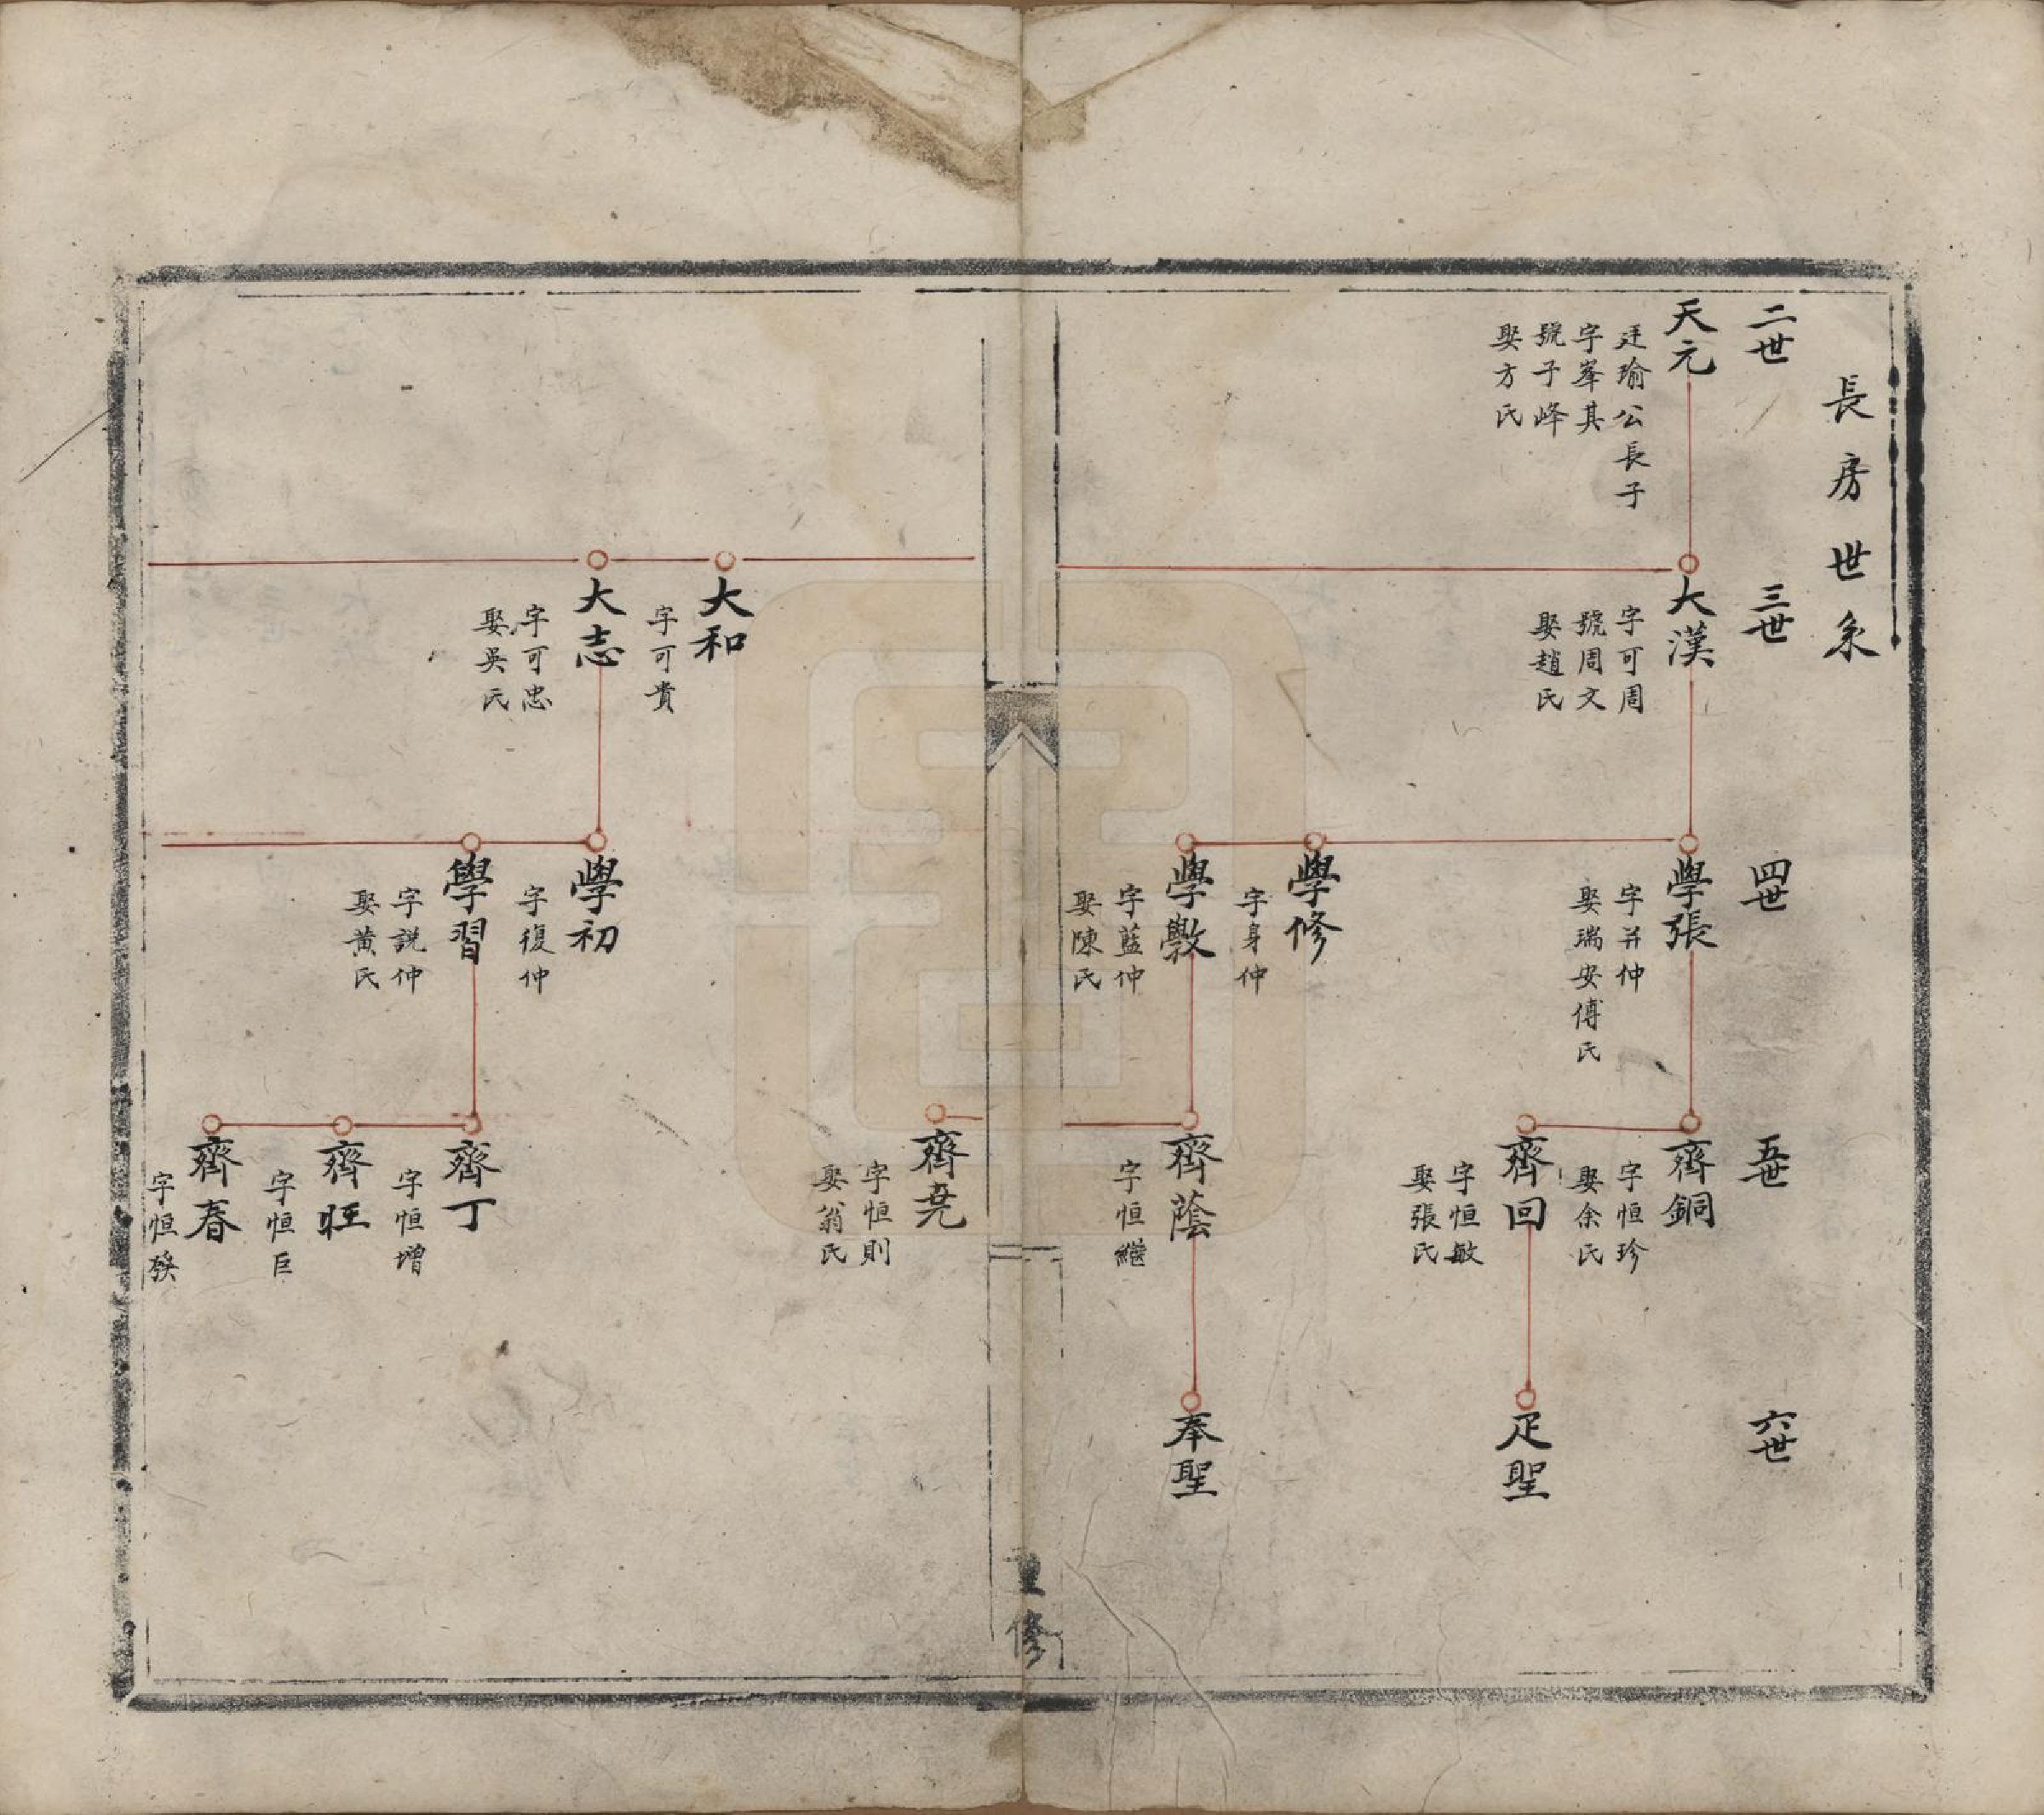 長房世系
二世
天元
廷瑜公長子
字峯其
號子峰
娶方氏
三世
大漢
字可周
號周文
娶趙氏
大和
字可貴
大志
字可忠
娶吳氏
四世
學張
字并仲
娶瑞安傅氏
學修
字身仲
學斆
字藍仲
娶陳氏
學初
字復仲
學習
字説仲
娶黃氏
五世
齊銅
字恒珍
娶余氏
齊回
字恒敏
娶張氏
齊蔭
字恒繼
齊堯
字恒則
娶翁氏
齊丁
字恒增
齊旺
字恒巨
齊春
字恒發
六世
疋聖
奉聖
重修